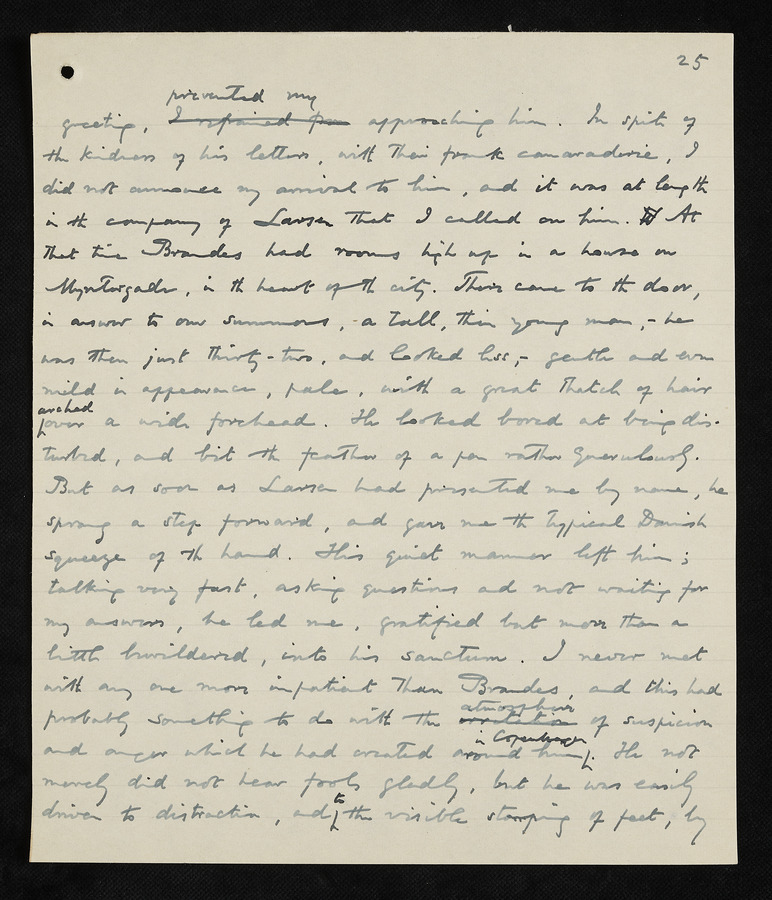 25
prevented my
greeting, I refrained from approaching him. In spite of
the kindness of his letters, with their frank camaraderie, I
did not announce my arrival to him, and it was at length
in the company of Larsen that I called on him. At
that time Brandes had rooms high up in a house on
Myntergade, in the heart of the city. There came to the door,
in answer to our summons, - a tall, thin young man, - he
was then just thirty-two, and looked less, - gentle and even
mild in appearance, pale, with a great thatch of hair
arched
over a wide forehead. He looked bored at being dis-
turbed, and bit the feather of a pen rather querulously.
But as soon as Larsen had presented me by name, he
sprang a step forward, and gave me the typical Danish
squeeze of the hand. His quiet manner left him;
talking very fast, asking questions and not waiting for
my answers, he led me, gratified but more than a
little bewildered, into his sanctum. I never met
with any one more impatient than Brandes, and this had
atmosphere
probably something to do with the irritation of suspicion
in Copenhagen
and anger which he had created around him. He not
merely did not bear fools gladly, but he was easily
to
driven to distraction, and the visible stamping of feet, by